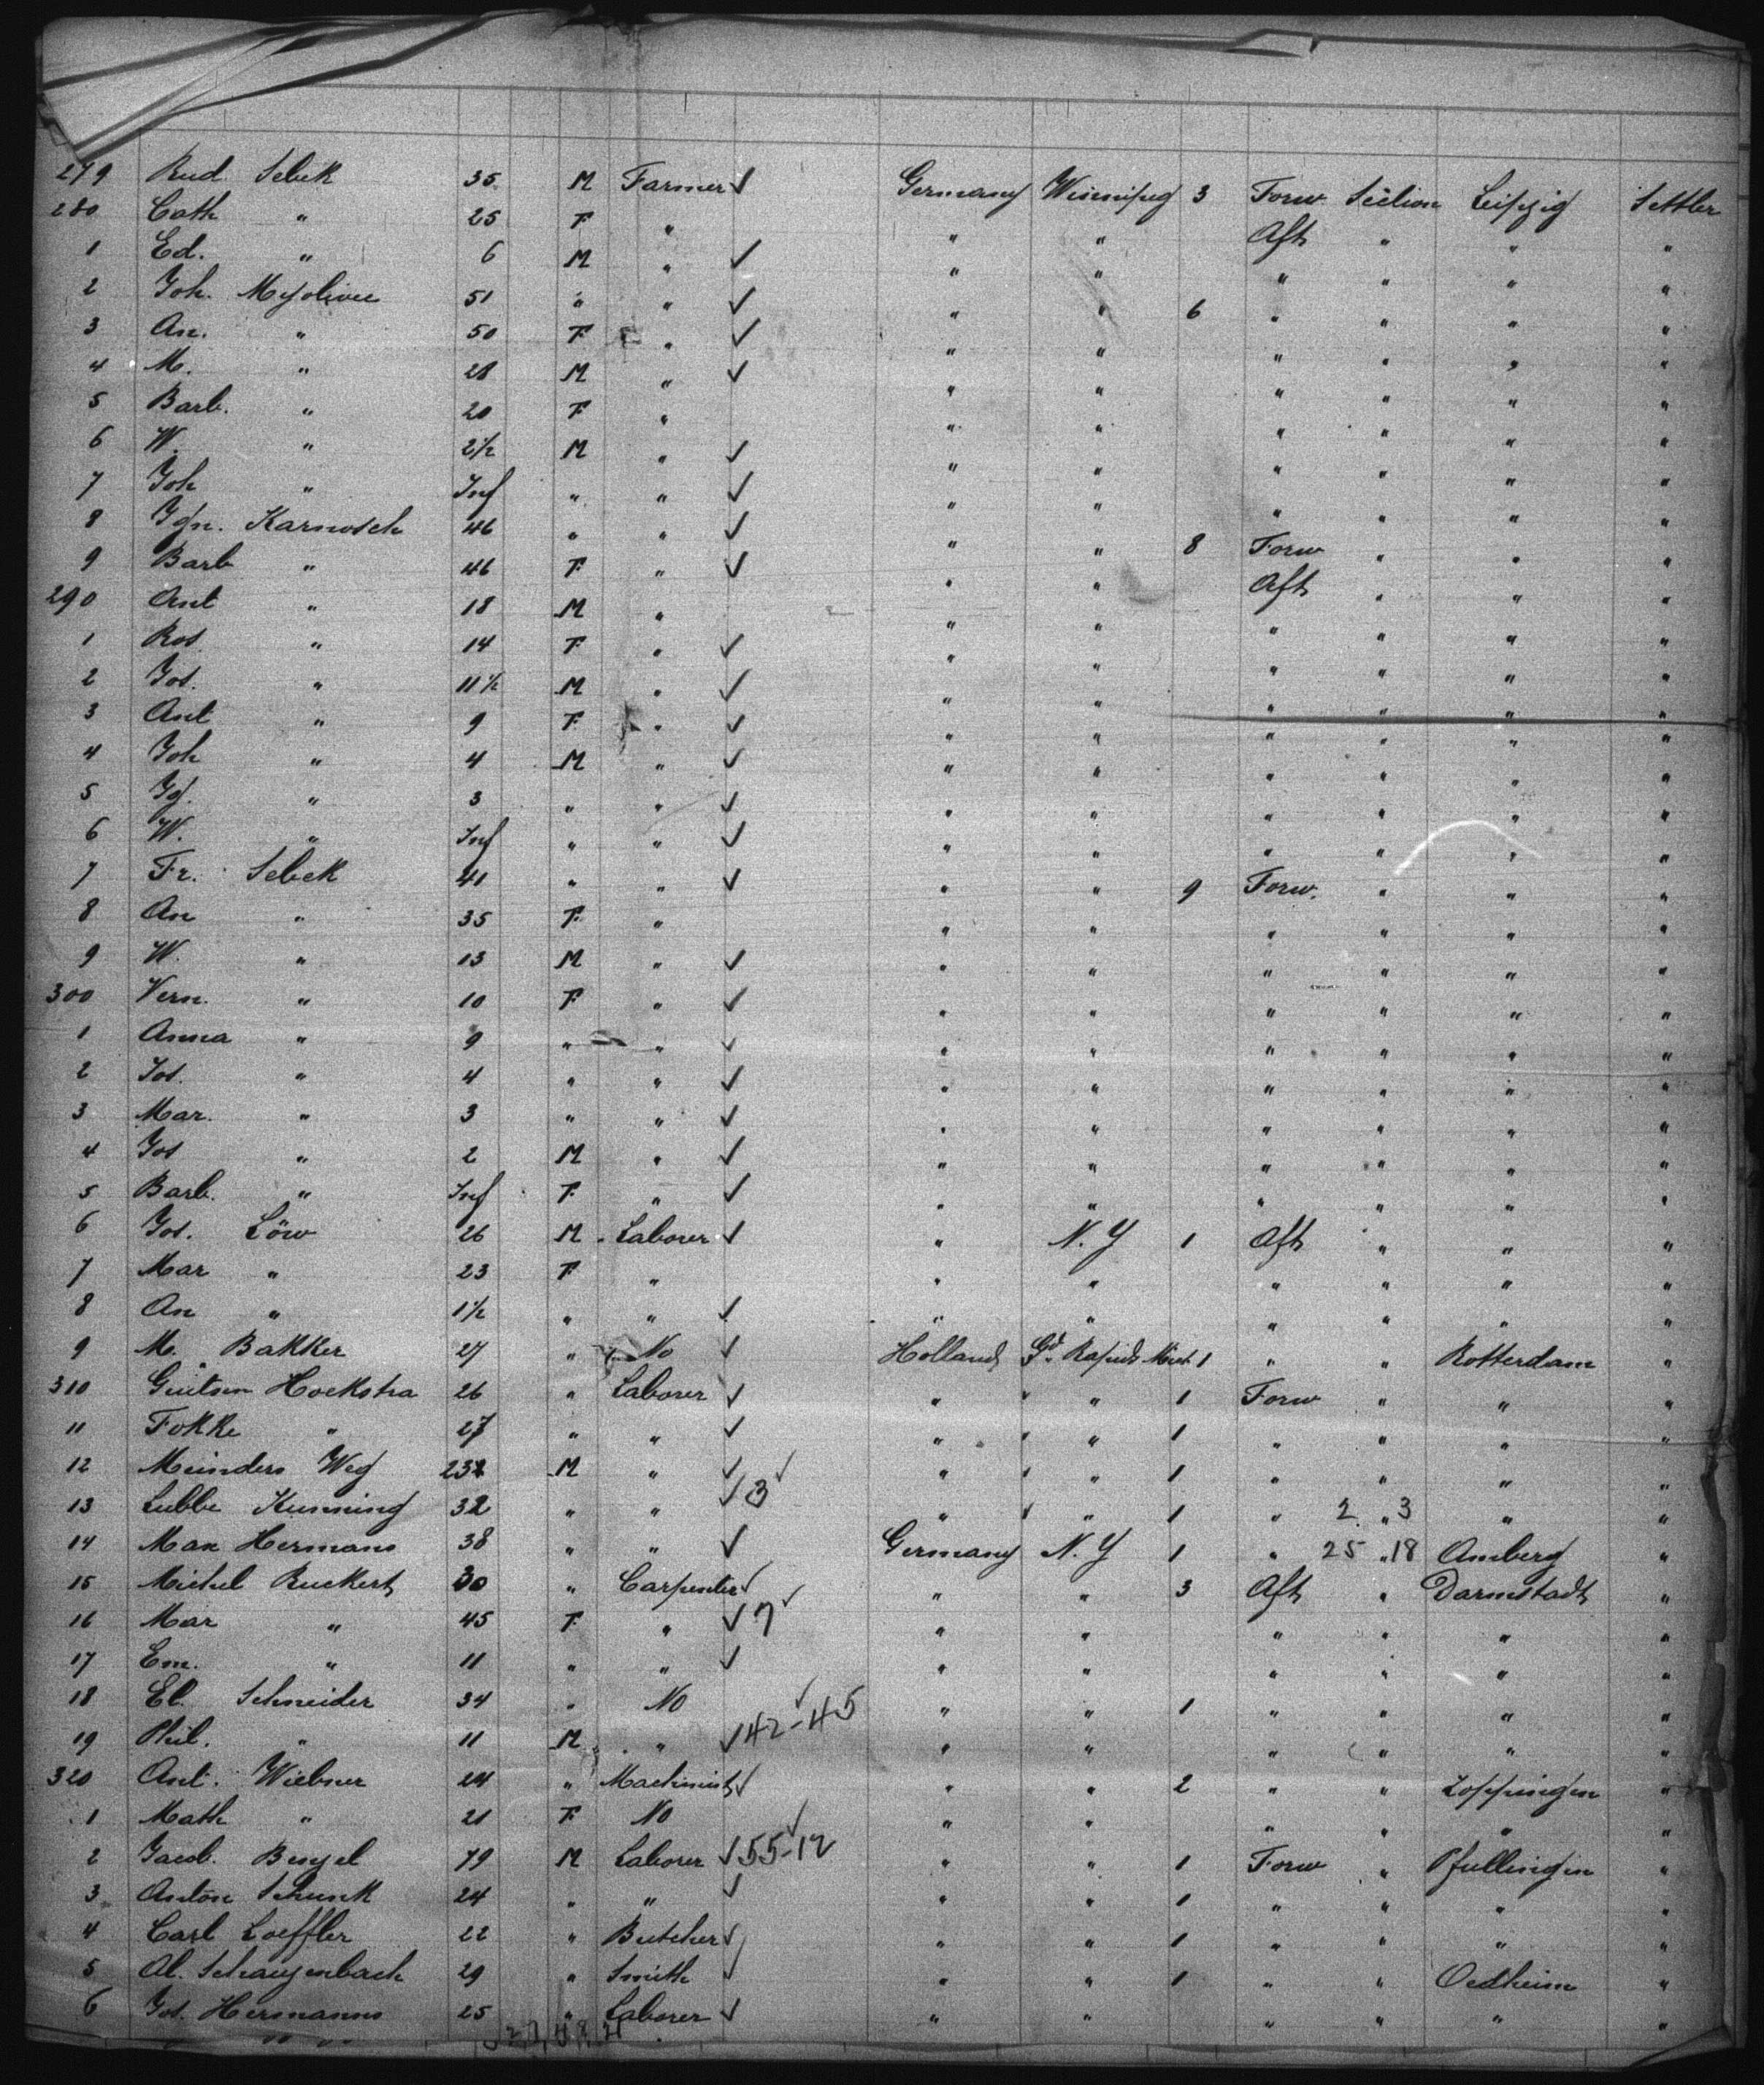 279 Rud. Sebek 35 M Farmer ✓ Germany Winnipeg 3 Forw. Section Leipzig Settler
280 Cath " 25 F " " " Aft " " "
1 Ed. " 6 M " ✓ " " " " " "
2 Joh. 51 " " ✓ " " 6 " " " "
3 An. " 50 F " ✓ " " " " " "
4 M. " 28 M " ✓ " " " " " "
5 Barb. " 20 F " " " " " " "
6 W. " 2½ M " ✓ " " " " " "
7 Joh " Inf " " ✓ " " " " " "
8 Ign. Karnosch 46 " " ✓ " " 8 Forw " " "
9 Barb " 46 F " ✓ " " Aft " " "
290 Ant " 18 M " " " " " " "
1 Ros. " 14 F " ✓ " " " " " "
2 Jos. " 11½ M " ✓ " " " " " "
3 Ant " 9 F " ✓ " " " " " "
4 Joh " 4 M " ✓ " " " " " "
5 Ig. " 3 " " ✓ " " " " " "
6 W. " Inf " " ✓ " " " " " "
7 Fr. Sebek 41 " " ✓ " " 9 Forw. " " "
8 An " 35 F " " " " " " "
9 W. " 13 M " ✓ " " " " " "
300 Vern. " 10 F " ✓ " " " " " "
1 Anna " 9 " " ✓ " " " " " "
2 Jos. " 4 " " ✓ " " " " " "
3 Mar. " 3 " " ✓ " " " " " "
4 Jos " 2 M " ✓ " " " " " "
5 Barb. " Inf F " ✓ " " " " " "
6 Jos. Löw 26 M Laborer ✓ " N. Y 1 Aft " " "
7 Mar " 23 F " " " " " " "
8 An " 1½ " " ✓ " " " " " "
9 M. Bakker 27 " No ✓ Holland Gd. Rapids Mich 1 " " Rotterdam "
310 Hoekstra 26 " Laborer ✓ " " " 1 Forw " " "
11 Fokke " 27 " " ✓ " " " 1 " " " "
12 Meinders Weg 23 M " ✓ ✓ " " " 1 " " " "
13 Lubbe Kunning 32 " " ✓ 3 " " " 1 " 2 " 3 " "
14 Max Hermans 38 " " ✓ Germany N. Y 1 " 25 " 18 Amberg "
15 Michel Ruckert 30 " Carpenter ✓ ✓ " " 3 Aft " Darmstadt "
16 Mar " 45 F " ✓ 7 " " " " " "
17 Em. " 11 " " ✓ " " " " " "
18 El. Schneider 34 " No ✓ " " 1 " " " "
19 Phil. " 11 M " ✓ 42-45 " " " " " "
320 Ant. Wiebner 24 " Machinist ✓ " " 2 " " Zoppingen "
1 Math " 21 F No ✓ " " " " " "
2 Jacob. Bengel 19 M Laborer ✓ 55-12 " " 1 Forw " Pfullingen "
3 Anton Schunk 24 " " ✓ " " 1 " " " "
4 Carl Loeffler 22 " Butcher ✓ " " 1 " " " "
5 Al. Schauzenbach 29 " Smith ✓ " " 1 " " Oedheim "
6 Jos. Hermanns 25 " Laborer ✓ " " " " " "